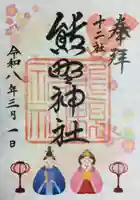 奉拝
十二社
熊野神社
令和八年三月一日